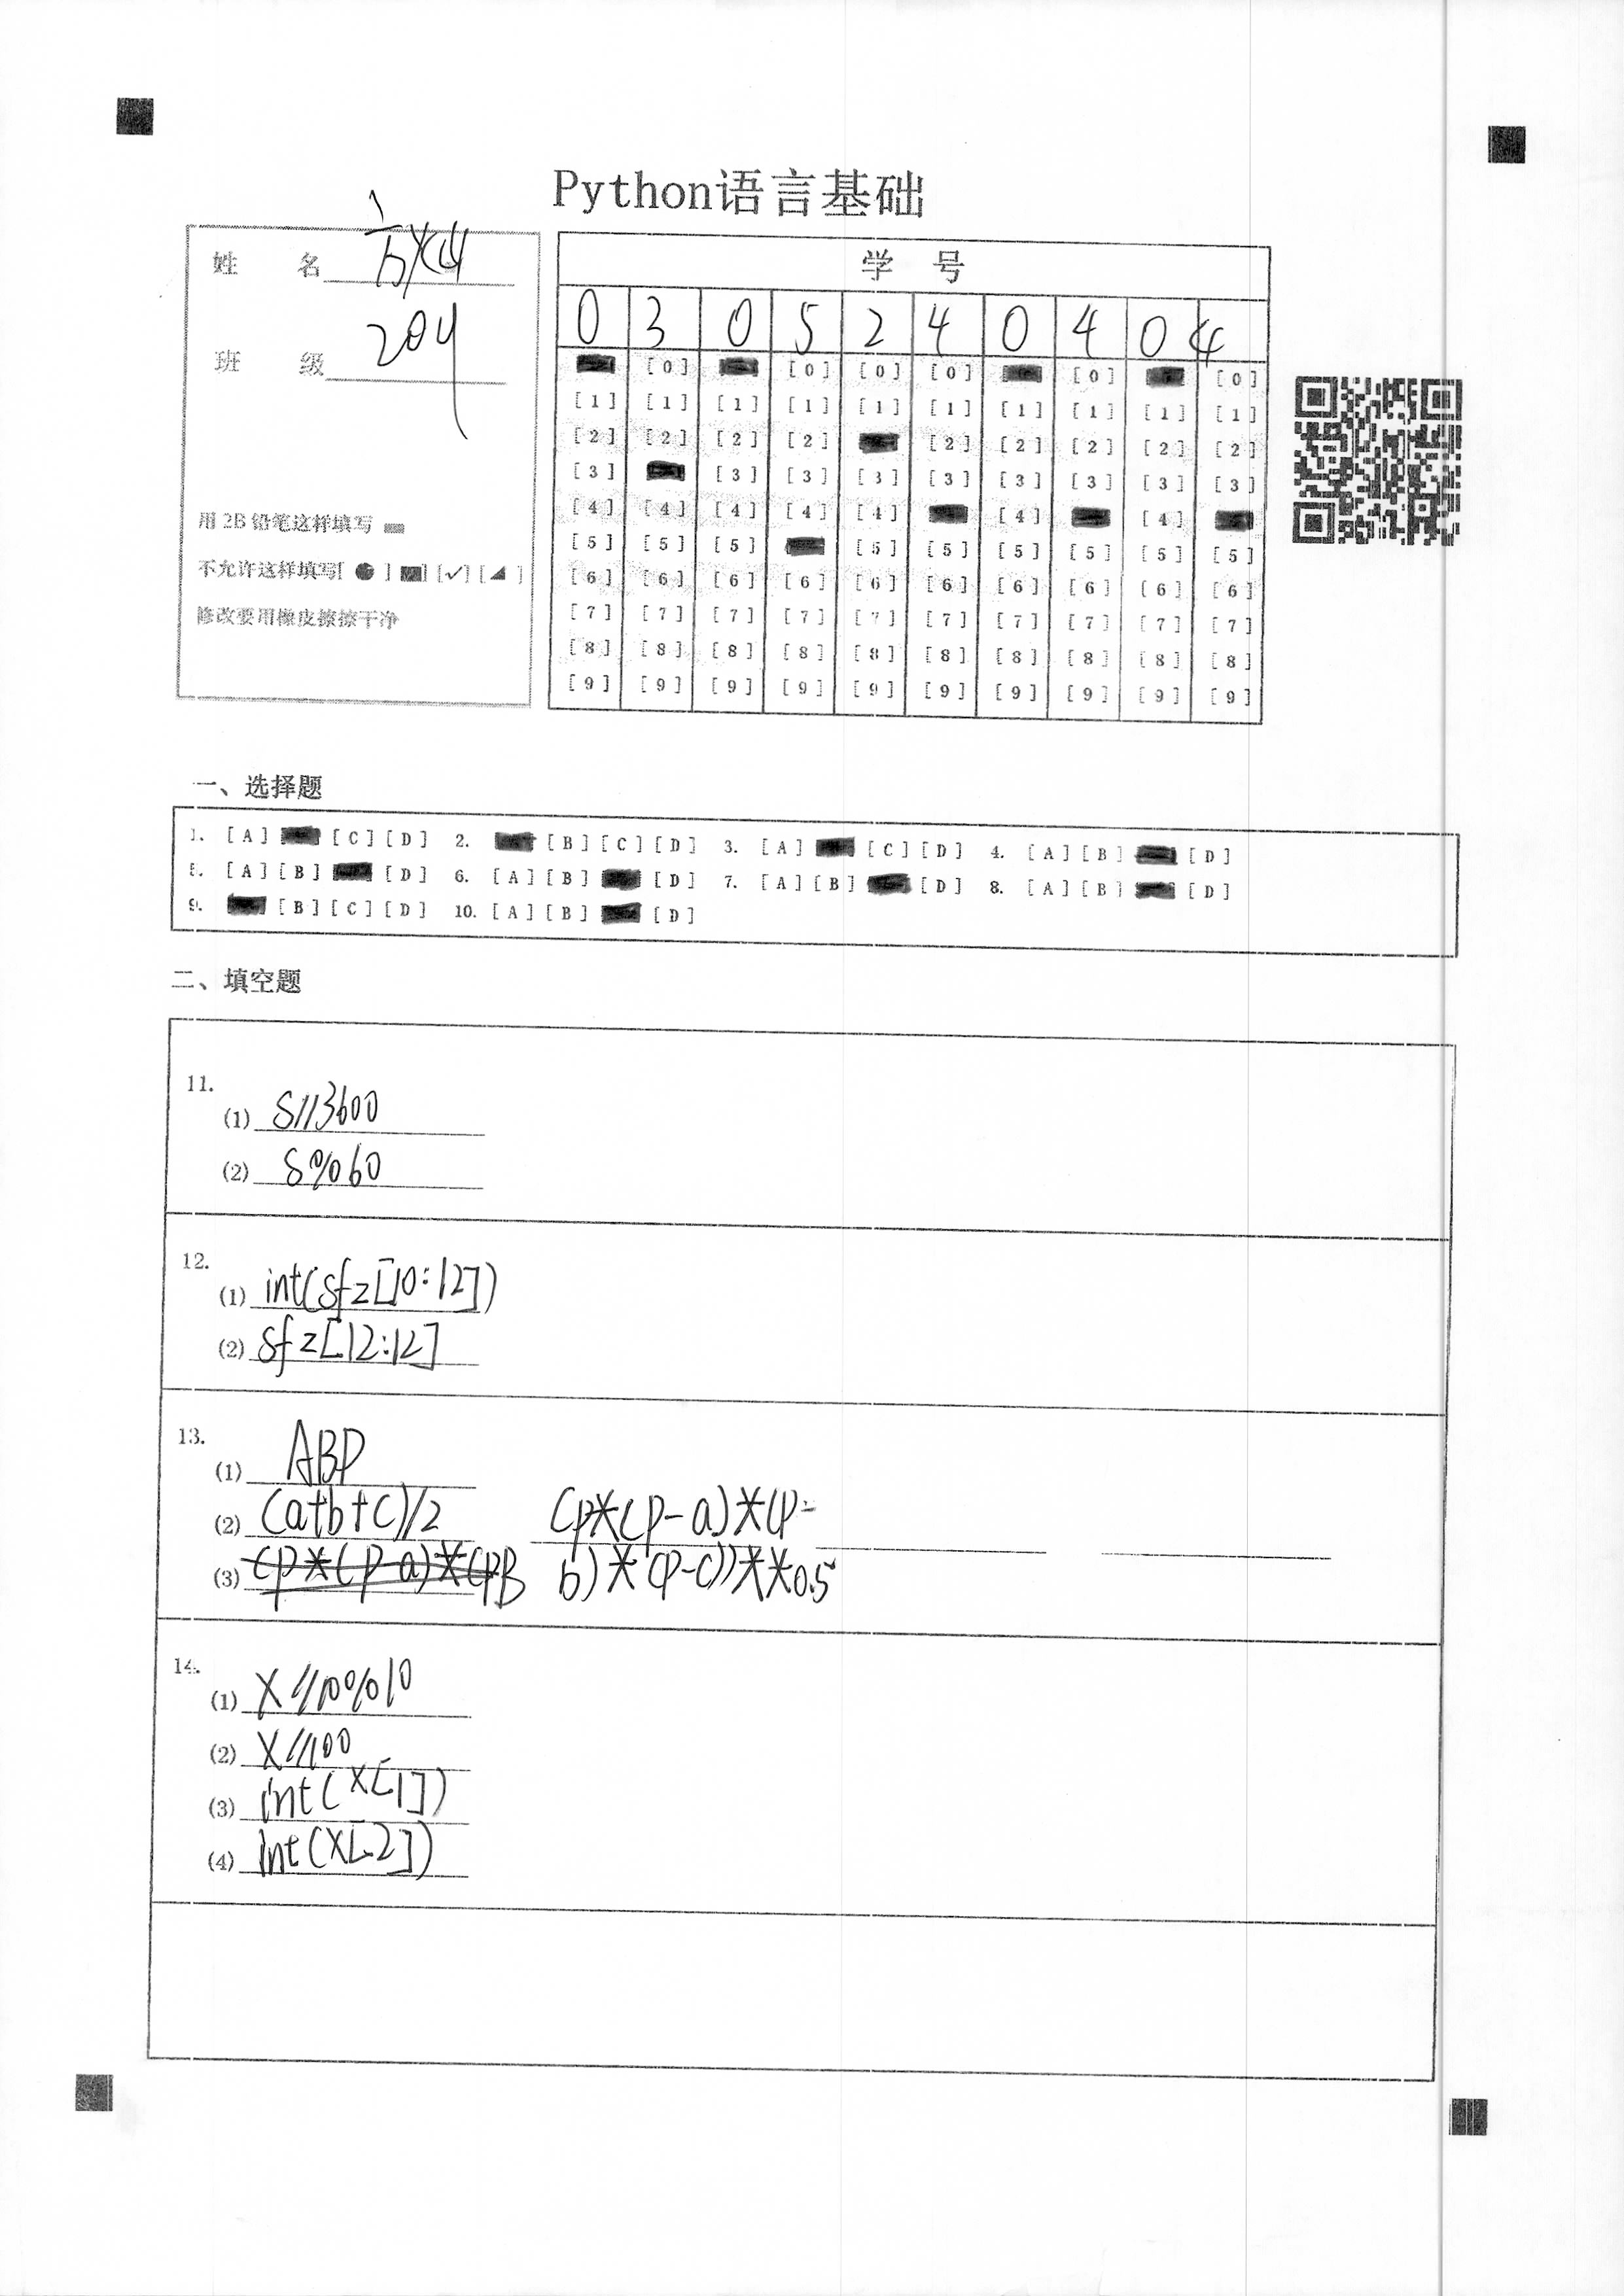 Python语言基础
姓 名
班 级 204
用 2B 铅笔这样填写
不允许这样填写[ ● ] [■] [✓] [◢ ]
修改要用橡皮擦擦干净
学 号
0 3 0 5 2 4 0 4 0 4
[0] [0] [0] [0] [0] [0]
[1] [1] [1] [1] [1] [1] [1] [1] [1] [1]
[2] [2] [2] [2] [2] [2] [2] [2] [2]
[3] [3] [3] [3] [3] [3] [3] [3] [3]
[4] [4] [4] [4] [4] [4] [4]
[5] [5] [5] [5] [5] [5] [5] [5] [5]
[6] [6] [6] [6] [6] [6] [6] [6] [6] [6]
[7] [7] [7] [7] [7] [7] [7] [7] [7] [7]
[8] [8] [8] [8] [8] [8] [8] [8] [8] [8]
[9] [9] [9] [9] [9] [9] [9] [9] [9] [9]
一、选择题
1. [A] [C] [D] 2. [B] [C] [D] 3. [A] [C] [D] 4. [A] [B] [D]
5. [A] [B] [D] 6. [A] [B] [D] 7. [A] [B] [D] 8. [A] [B] [D]
9. [B] [C] [D] 10. [A] [B] [D]
二、填空题
11.
(1) s//3600
(2) s%60
12.
(1) int(sfz[10:12])
(2) sfz[12:12]
13.
(1) ABD
(2) (a+b+c)/2 (p*(p-a)*(p-
(3) b)*(p-c))**0.5
14.
(1) x//10%10
(2) x//100
(3) int(x[1])
(4) int(x[2])